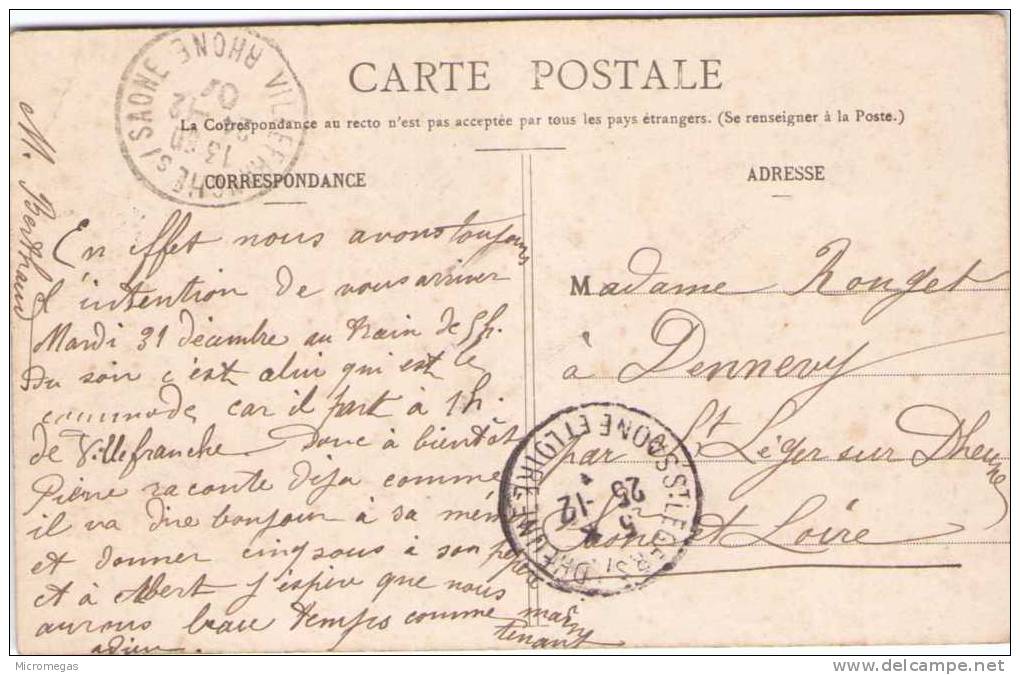 CARTE POSTALE
La Correspondance au recto n'est pas acceptée par tous les pays étrangers. (Se renseigner à la Poste.)
CORRESPONDANCE
M. Berthaud
En effet nous avons toujours
l'intention de nous arriver
Mardi 31 décembre au train de 5h.
du soir c'est celui qui est le
commode car il part à 1h.
de Villefranche. Donc à bientôt
Pierre raconte déja comme
il va dire bonjour à sa mémé
et donner cinq sous à son pépé
et à Albert j'espère que nous
aurons beau temps comme main
tenant
adieu.
ADRESSE
Madame Rouget
à Dennevy
par St Léger sur Dheune
Saône et Loire
VILLEFRANCHE S/SAONE
RHONE
13
07
ST LEGER S. DHEUNE
SAONE ET LOIRE
5
25 -12
Micromegas
delcampe.net